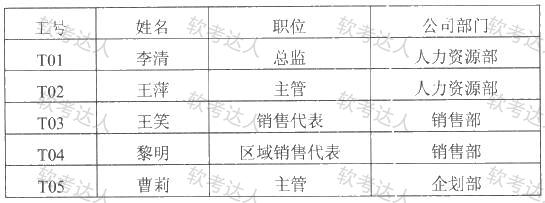 工号 姓名 职位 公司部门
T01 李清 总监 人力资源部
T02 王萍 主管 人力资源部
T03 王笑 销售代表 销售部
T04 黎明 区域销售代表 销售部
T05 曹莉 主管 企划部
软考达人
软考达人
软考达人
软考达人
软考达人
软考达人
软考达人
软考达人
软考达人